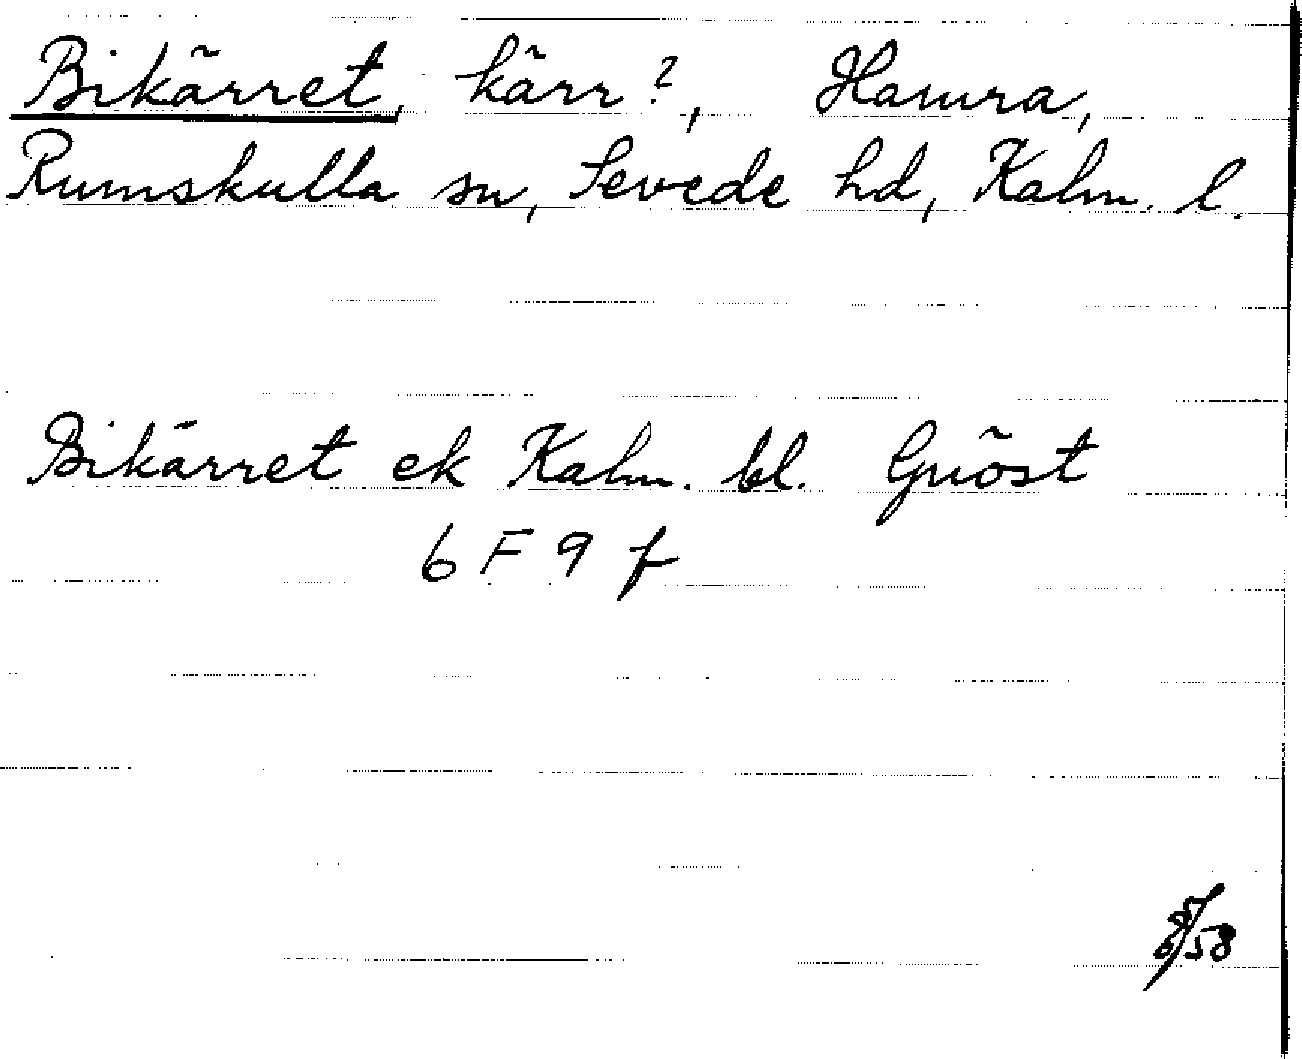 Bikärret, kärr?, Hamra,
Rumskulla sn, Sevede hd, Kalm. l.
Bikärret ek Kalm. bl. Gnöst
6 F 9 f
58